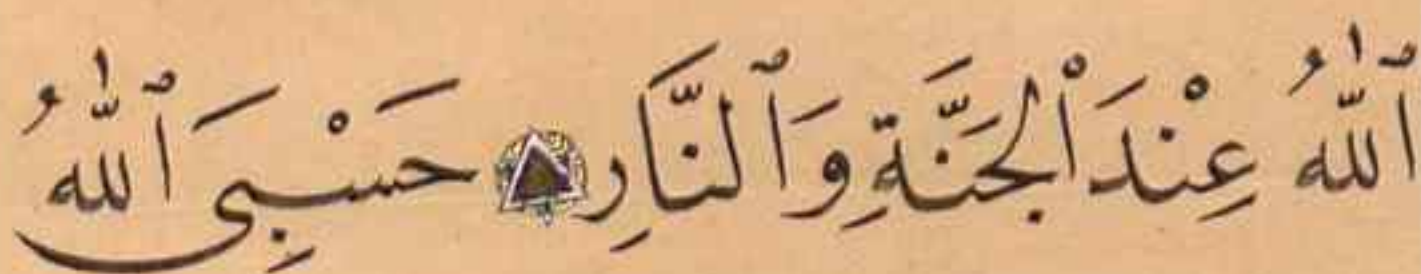 ٱللّٰهُ عِنْدَ ٱلْجَنَّةِ وَٱلنَّارِ حَسْبِىَ ٱللّٰهُ